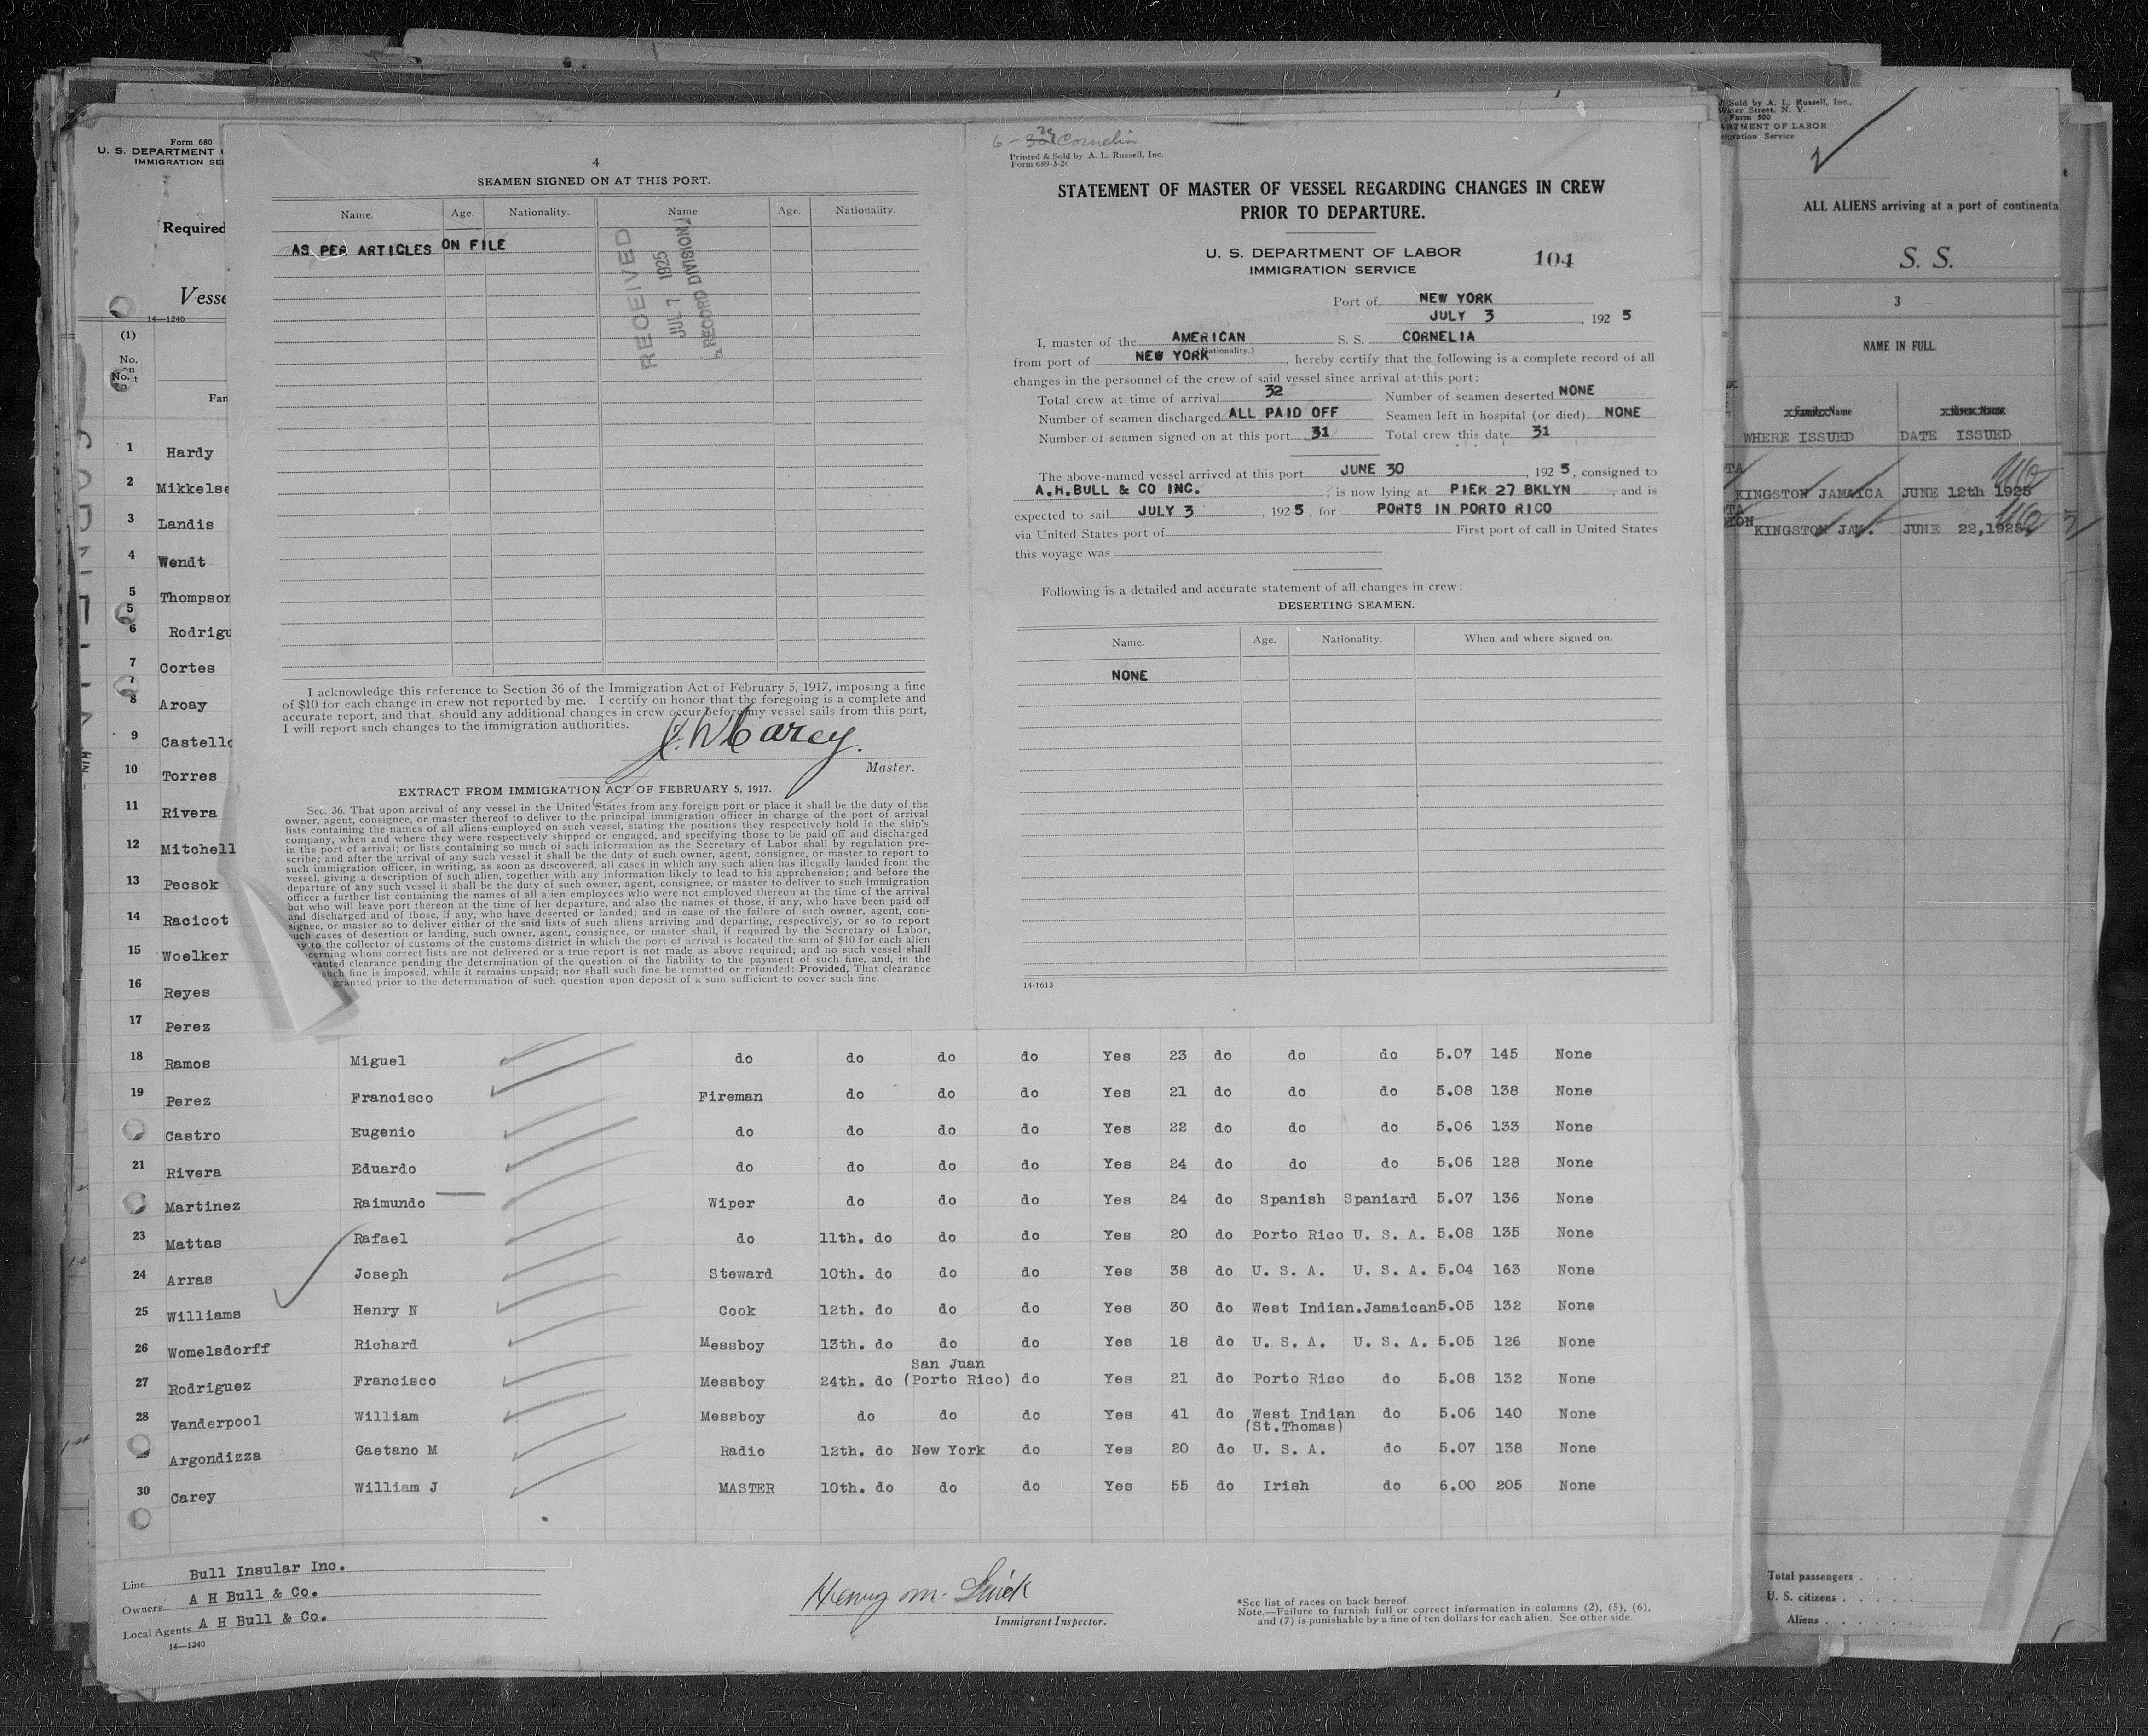 Form 680
U. S. DEPARTMENT
IMMIGRATION SE
Required
Vesse
14—1240
(1)
No.
No.
Fam
1 Hardy
2 Mikkelse
3 Landis
4 Wendt
5 Thompson
5
6 Rodrigu
7 Cortes
8 Aroay
9 Castello
10 Torres
11 Rivera
12 Mitchell
13 Pecsok
14 Racicot
15 Woelker
16 Reyes
17 Perez
4
SEAMEN SIGNED ON AT THIS PORT.
Name. Age. Nationality. Name. Age. Nationality.
AS PER ARTICLES ON FILE
RECEIVED
JUL 7 1925
RECORD DIVISION
I acknowledge this reference to Section 36 of the Immigration Act of February 5, 1917, imposing a fine
of $10 for each change in crew not reported by me. I certify on honor that the foregoing is a complete and
accurate report, and that, should any additional changes in crew occur before my vessel sails from this port,
I will report such changes to the immigration authorities.
J. W Carey.
Master.
EXTRACT FROM IMMIGRATION ACT OF FEBRUARY 5, 1917.
Sec. 36. That upon arrival of any vessel in the United States from any foreign port or place it shall be the duty of the
owner, agent, consignee, or master thereof to deliver to the principal immigration officer in charge of the port of arrival
lists containing the names of all aliens employed on such vessel, stating the positions they respectively hold in the ship's
company, when and where they were respectively shipped or engaged, and specifying those to be paid off and discharged
in the port of arrival; or lists containing so much of such information as the Secretary of Labor shall by regulation pre-
scribe; and after the arrival of any such vessel it shall be the duty of such owner, agent, consignee, or master to report to
such immigration officer, in writing, as soon as discovered, all cases in which any such alien has illegally landed from the
vessel, giving a description of such alien, together with any information likely to lead to his apprehension; and before the
departure of any such vessel it shall be the duty of such owner, agent, consignee, or master to deliver to such immigration
officer a further list containing the names of all alien employees who were not employed thereon at the time of the arrival
but who will leave port thereon at the time of her departure, and also the names of those, if any, who have been paid off
and discharged and of those, if any, who have deserted or landed; and in case of the failure of such owner, agent, con-
signee, or master so to deliver either of the said lists of such aliens arriving and departing, respectively, or so to report
such cases of desertion or landing, such owner, agent, consignee, or master shall, if required by the Secretary of Labor,
y to the collector of customs of the customs district in which the port of arrival is located the sum of $10 for each alien
cerning whom correct lists are not delivered or a true report is not made as above required; and no such vessel shall
ranted clearance pending the determination of the question of the liability to the payment of such fine, and, in the
such fine is imposed, while it remains unpaid; nor shall such fine be remitted or refunded: Provided, That clearance
granted prior to the determination of such question upon deposit of a sum sufficient to cover such fine.
6- Cornelia
Printed & Sold by A. L. Russell, Inc.
Form 689-3-2
STATEMENT OF MASTER OF VESSEL REGARDING CHANGES IN CREW
PRIOR TO DEPARTURE.
U. S. DEPARTMENT OF LABOR
IMMIGRATION SERVICE
104
Port of NEW YORK
JULY 3, 1925
I, master of the AMERICAN S. S. CORNELIA
(Nationality.)
from port of NEW YORK, hereby certify that the following is a complete record of all
changes in the personnel of the crew of said vessel since arrival at this port:
Total crew at time of arrival 32 Number of seamen deserted NONE
Number of seamen discharged ALL PAID OFF Seamen left in hospital (or died) NONE
Number of seamen signed on at this port 31 Total crew this date 31
The above-named vessel arrived at this port JUNE 30, 1925, consigned to
A.H.BULL & CO INC.; is now lying at PIER 27 BKLYN, and is
expected to sail JULY 3, 1925, for PORTS IN PORTO RICO
via United States port of First port of call in United States
this voyage was
Following is a detailed and accurate statement of all changes in crew:
DESERTING SEAMEN.
Name. Age. Nationality. When and where signed on.
NONE
14-1613
Sold by A. L. Russell, Inc.,
Water Street, N. Y.
Form 500
ARTMENT OF LABOR
igration Service
ALL ALIENS arriving at a port of continenta
S. S.
3
NAME IN FULL
Family Name Given Name
WHERE ISSUED DATE ISSUED
KINGSTON JAMAICA JUNE 12th 1925
KINGSTON JAM. JUNE 22,1925
18 Ramos Miguel do do do do Yes 23 do do do 5.07 145 None
19 Perez Francisco Fireman do do do Yes 21 do do do 5.08 138 None
Castro Eugenio do do do do Yes 22 do do do 5.06 133 None
21 Rivera Eduardo do do do do Yes 24 do do do 5.06 128 None
Martinez Raimundo Wiper do do do Yes 24 do Spanish Spaniard 5.07 136 None
23 Mattas Rafael do 11th. do do do Yes 20 do Porto Rico U. S. A. 5.08 135 None
24 Arras Joseph Steward 10th. do do do Yes 38 do U. S. A. U. S. A. 5.04 163 None
25 Williams Henry N Cook 12th. do do do Yes 30 do West Indian.Jamaican 5.05 132 None
26 Womelsdorff Richard Messboy 13th. do do do Yes 18 do U. S. A. U. S. A. 5.05 126 None
San Juan
27 Rodriguez Francisco Messboy 24th. do (Porto Rico) do Yes 21 do Porto Rico do 5.08 132 None
28 Vanderpool William Messboy do do do Yes 41 do West Indian do 5.06 140 None
(St.Thomas)
Argondizza Gaetano M Radio 12th. do New York do Yes 20 do U. S. A. do 5.07 138 None
30 Carey William J MASTER 10th. do do do Yes 55 do Irish do 6.00 205 None
Line Bull Insular Inc.
Owners A H Bull & Co.
Local Agents A H Bull & Co.
14—1240
Henry M.
Immigrant Inspector.
*See list of races on back hereof.
Note.—Failure to furnish full or correct information in columns (2), (5), (6),
and (7) is punishable by a fine of ten dollars for each alien. See other side.
Total passengers
U. S. citizens
Aliens